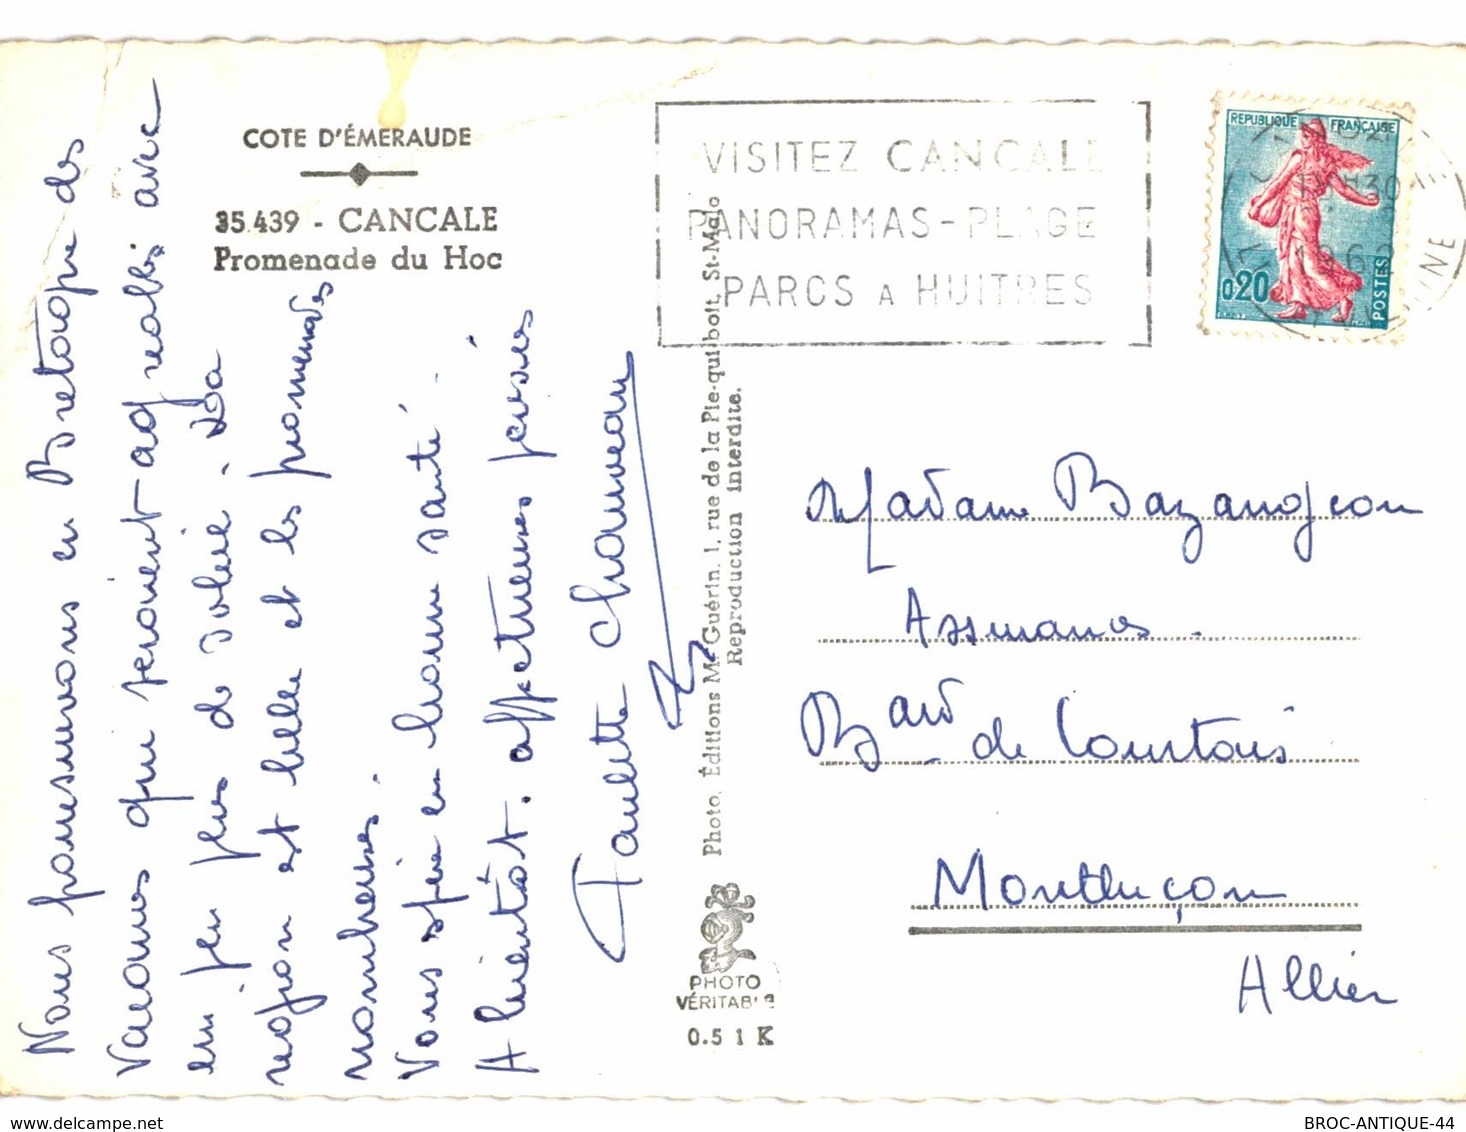 COTE D'ÉMERAUDE
35.439 - CANCALE
Promenade du Hoc
Nous poursuivons en Bretagne des
vacances qui seraient agréables avec
un peu plus de soleil. La
région est belle et les promenades
nombreuses.
Vous espère en bonne santé.
A bientôt. affectueuses pensées
Paulette Chauveau
VISITEZ CANCALE
PANORAMAS - PLAGE
PARCS A HUITRES
REPUBLIQUE FRANÇAISE
0,20
POSTES
Photo. Éditions M. Guérin, 1, rue de la Pie-qui-boit, St-Malo
Reproduction interdite.
PHOTO
VÉRITABLE
0.5 1 K
Madame Bazangeon
Assmanos.
Bard de Courtais
Montluçon
Allier
BROC-ANTIQUE-44